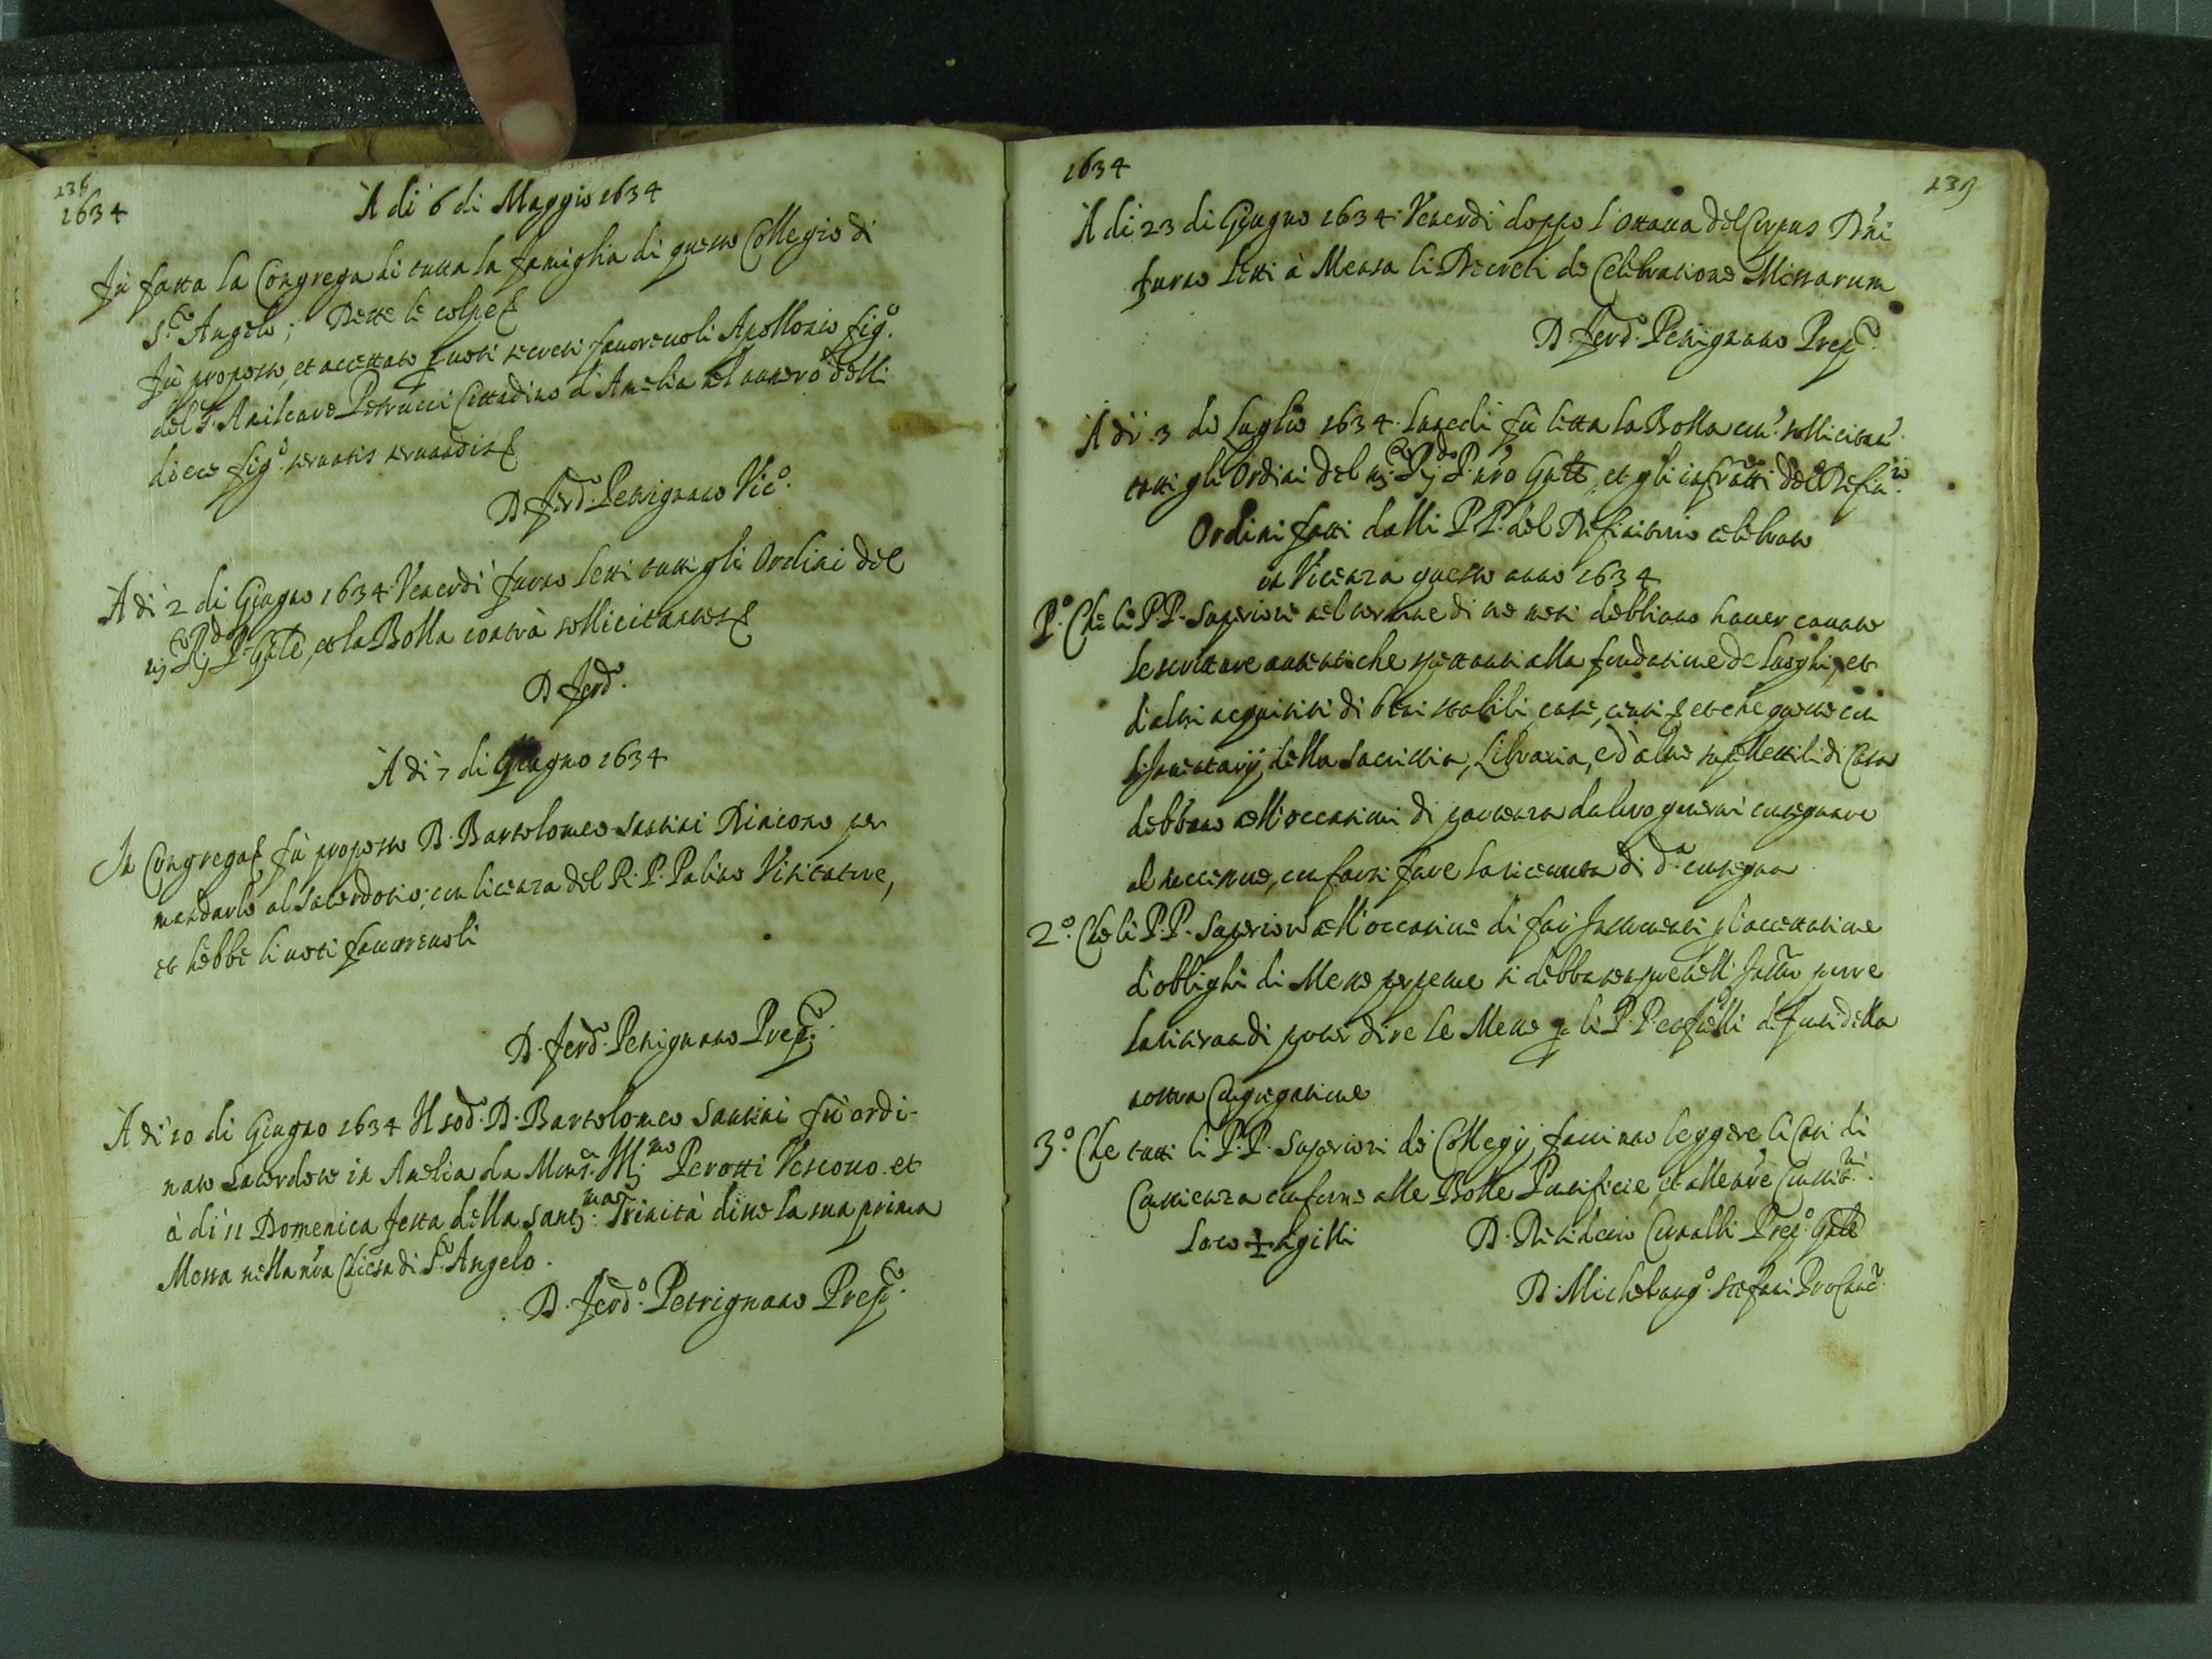 238
1634
À di 6 di Maggio 1634
Fù fatta la Congrega di tutta la famiglia di questo Collegio di
S.to Angelo; Dette le colpe
Fù proposto, et accettato uoti secreti fauoreuoli Apollonio fig.o
del S. Amilcare Petrucci Cittadino d'Amelia nel numero delli
diece fig.o seruatis seruandis
D. Ferd.o Petrignano Vic.o
À di 2 di Giugno 1634 Venerdi furno letti tutti gli Ordini del
P. Gñle, et la Bolla contrà sollicitantes
D. Ferd.o
À di 7 di Giugno 1634
In Congrega fù proposto D. Bartolomeo Santini Diacono per
mandarlo al sacerdotio, con licenza del R. P. Palino Visitatore,
et hebbe li uoti fauoreuoli
D. Ferd.o Petrignano Prep.to
À di 10 di Giugno 1634 Il sod.o D. Bartolomeo Santini fù ordi-
nato Sacerdote in Amelia da Mons.r Ill.mo Perotti Vescouo. et
à di 11 Domenica festa della Sant.ma Trinità disse la sua prima
Messa nella nr̃a Chiesa di S.to Angelo.
D. Ferd.o Petrignano Prep.to
1634
239
À di 23 di Giugno 1634. Venerdi doppo l'ottaua del Corpus Dñi
furno letti à Mensa li Decreti de Celebratione Missarum
D. Ferd.o Petrignano Prep.to
À di 3 de Luglio 1634. Lunedi fù letta la Bolla con.a sollicitan.
tutti gli Ordini del P. nr̃o Gñle, et gli infratti del Defin.rio
Ordini fatti dalli P.P. del Definitorio celebrato
in Vicenza questo anno 1634
P.o Che li P.P. Superiori nel termine di tre mesi debbiano hauer cauate
le scritture autentiche spettanti alla fondatione de luoghi, et
d'altri acquisiti di beni stabili, case, censi et che queste con
l'Inuentarij della Sacristia, Libraria, ed altre supellettili di Casa
debbano nell'occasioni di partenza da loro gouerni consegnare
al successore, con farsi fare la riceuuta di d.a consegna
2.o Che li P.P. Superiori nell'occasione di far Instrumenti accettatione
d'oblighi di Messe perpetue si debba sempre nelli Instr̃i porre
la di poter dire le Messe li P.P. fuori della
nostra Congregatione
3.o Che tutti li P.P. Superiori de Collegij faccino leggere li Casi di
Conscienza conforme alle Bolle Pontificie, et alle nr̃e Constit.ni
Loco + sigilli
D. Desiderio Cornalbi Prep.o Gñle
D. Michelang.o Stefani Procanc.